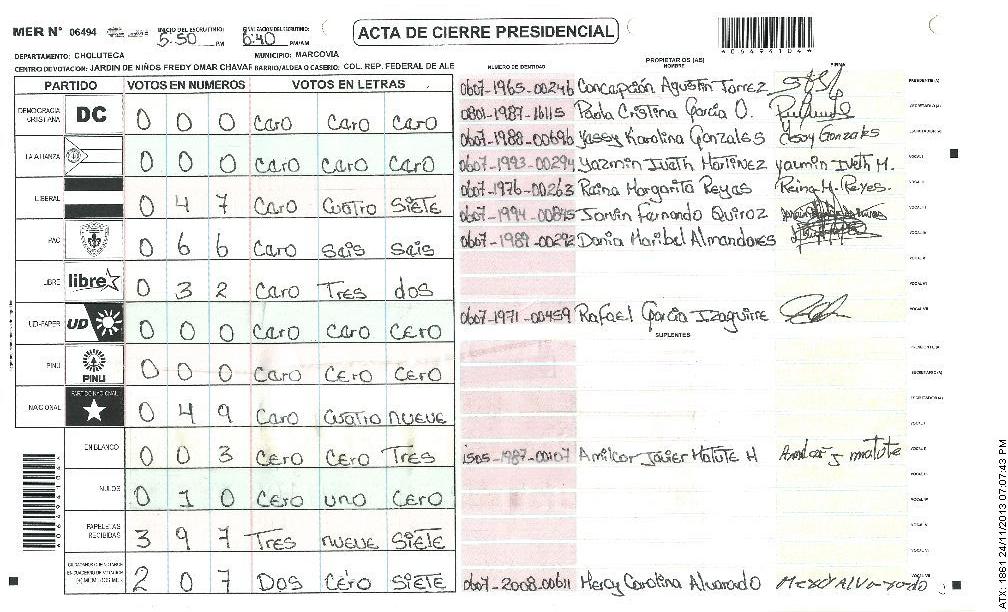 MER Nº 06494 INICIO DEL ESCRUTINIO: 5:50 PM FINALIZACION DEL ESCRUTINIO: 6:40 PM/AM
ACTA DE CIERRE PRESIDENCIAL
DEPARTAMENTO: CHOLUTECA MUNICIPIO: MARCOVIA
CENTRO DE VOTACION: JARDIN DE NIÑOS FREDY OMAR CHAVAR BARRIO/ALDEA O CASERIO: COL. REP. FEDERAL DE ALE
PARTIDO VOTOS EN NUMEROS VOTOS EN LETRAS
DEMOCRACIA CRISTIANA DC 0 0 0 Caro Caro Caro
LA ALIANZA 0 0 0 Caro Caro Caro
LIBERAL 0 4 7 Caro Cuatro SiETE
PAC 0 6 6 Caro Sais Sais
LIBRE libre 0 3 2 Caro Tres dos
UD-FAPER UD 0 0 0 Caro Caro CEro
PINU PINU 0 0 0 Caro CEro CEro
NACIONAL PARTIDO NACIONAL 0 4 9 Caro Cuatro nueve
EN BLANCO 0 0 3 CEro CEro TrEs
NULOS 0 1 0 CEro uno CEro
PAPELETAS RECIBIDAS 3 9 7 TrEs nueve SiETE
2 0 7 Dos CEro SiETE
PROPIETARIOS (AS)
NUMERO DE IDENTIDAD NOMBRE FIRMA
0607-1965-00246 Concepción Agustin Torrez PRESIDENTE(A)
0801-1987-16115 Paola Cristina Garcia O. SECRETARIO(A)
0607-1988-00696 Yessy Karolina Gonzales Yessy Gonzales
0607-1993-00294 Yazmin Iveth Martinez Yazmin Iveth M. VOCAL I
0607-1976-00263 Raina Margarita Reyas Reina M. Reyes.
0607-1994-00845 Jorvin Fernando Quiroz
0607-1989-00292 Dania Maribel Almandares
0607-1971-00459 Rafael Garcia Izaguirre
SUPLENTES
PRESIDENTE(A)
SECRETARIO(A)
1505-1987-00107 Amilcar Javier Matute M Amilcar J matute
0607-2008-00611 Mercy Carolina Alvarado
ATX-1981 24/11/2013 07:07:43 PM